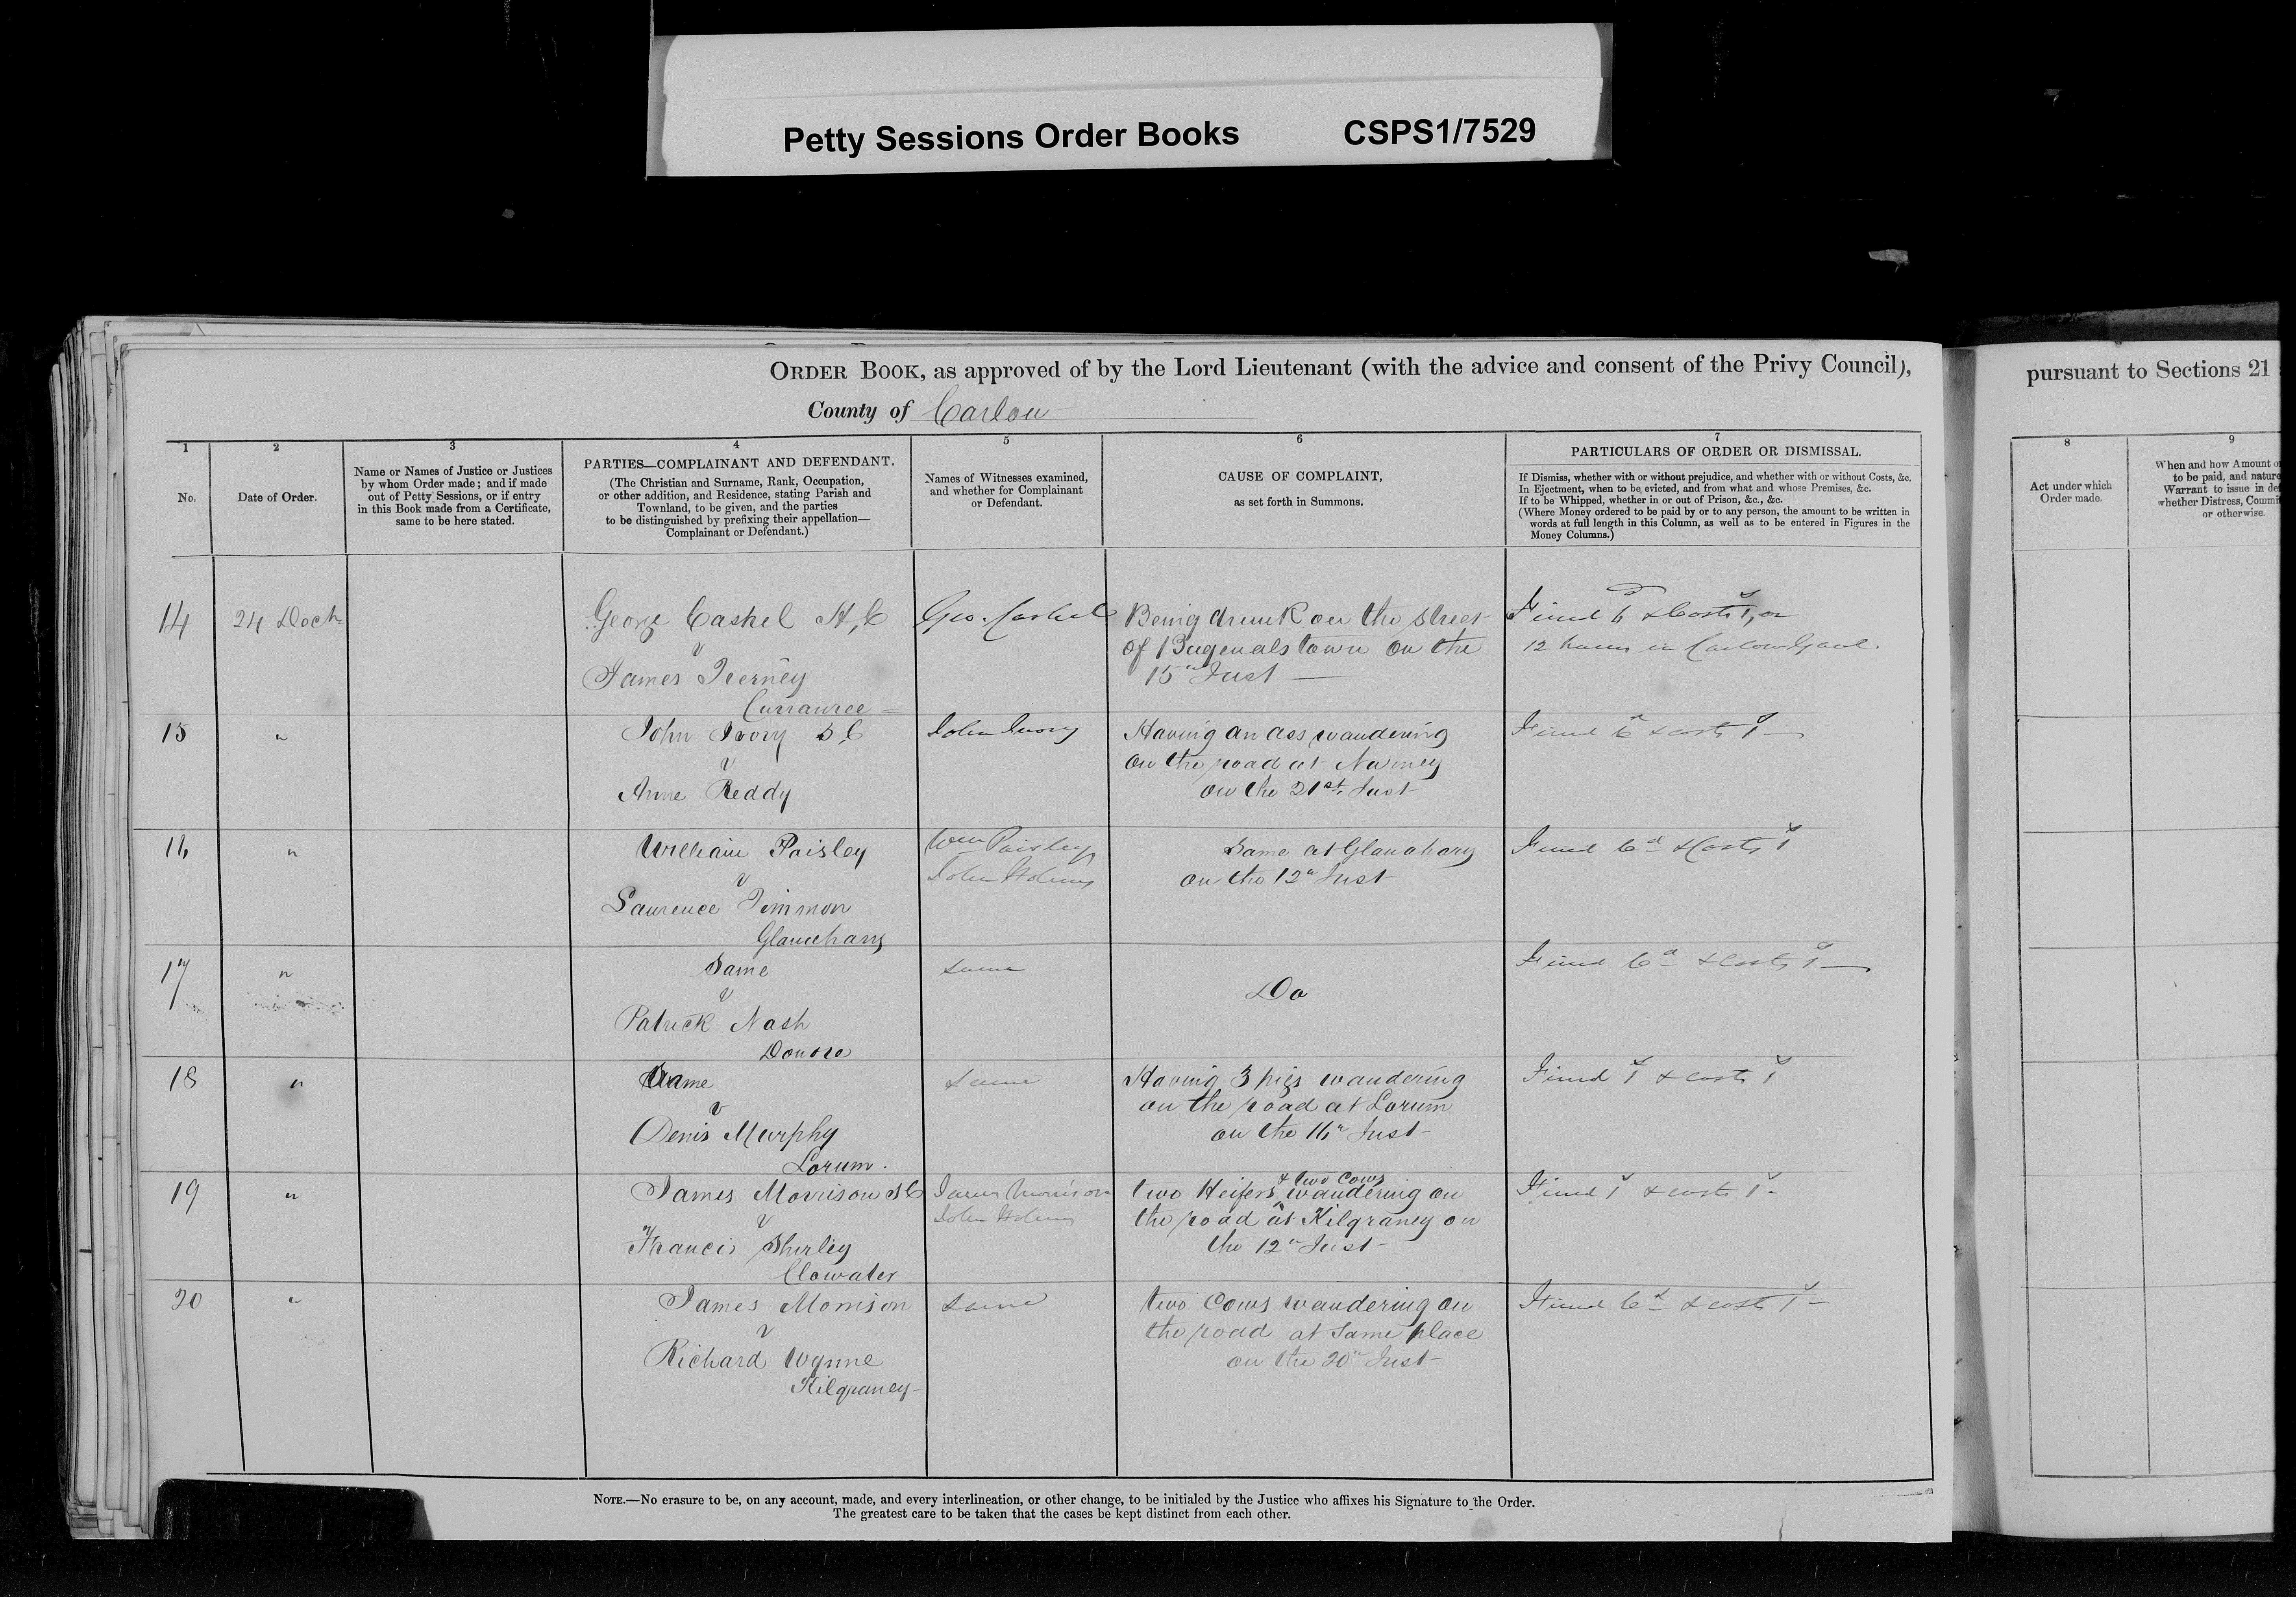 Petty Sessions Order Books CSPS1/7529
ORDER BOOK, as approved of by the Lord Lieutenant (with the advice and consent of the Privy Council),
pursuant to Sections 21
County of Carlow
1
2
3
4
5
6
7
8
9
No.
Date of Order.
Name or Names of Justice or Justices
by whom Order made; and if made
out of Petty Sessions, or if entry
in this Book made from a Certificate,
same to be here stated.
PARTIES—COMPLAINANT AND DEFENDANT.
(The Christian and Surname, Rank, Occupation,
or other addition, and Residence, stating Parish and
Townland, to be given, and the parties
to be distinguished by prefixing their appellation—
Complainant or Defendant.)
Names of Witnesses examined,
and whether for Complainant
or Defendant.
CAUSE OF COMPLAINT,
as set forth in Summons.
PARTICULARS OF ORDER OR DISMISSAL.
If Dismiss, whether with or without prejudice, and whether with or without Costs, &c.
In Ejectment, when to be evicted, and from what and whose Premises, &c.
If to be Whipped, whether in or out of Prison, &c., &c.
(Where Money ordered to be paid by or to any person, the amount to be written in
words at full length in this Column, as well as to be entered in Figures in the
Money Columns.)
Act under which
Order made.
When and how Amount
to be paid, and nature
Warrant to issue in
whether Distress,
or otherwise.
14
24 Decr
George Cashel H,C
v
James Tierney
Curranree
Geo. Cashel
Being drunk on the street
of Bagenalstown on the
15th Inst
Fined 6d & Costs 1s, or
12 hours in Carlow Gaol.
15
"
John Ivory S C
v
Anne Reddy
John Ivory
Having an ass wandering
on the road at Nurney
on the 21st Inst
Fined 6d & costs 1s
16
"
William Paisley
v
Laurence Timmon
Glanahary
Wm Paisley
John Holmes
Same at Glanahary
on the 12th Inst
Fined 6d & Costs 1s
17
"
Same
v
Patrick Nash
Donore
Same
Do
Fined 6d & Costs 1s
18
"
Same
v
Denis Murphy
Lorum.
Same
Having 3 pigs wandering
on the road at Lorum
on the 16th Inst
Fined 1s & costs 1s
19
"
James Morrison S C
v
Francis Shirley
Clowater
James Morrison
John Holmes
& two cows
two Heifers wandering on
the road at Kilgraney on
the 12th Inst
Fined 1s & costs 1s
20
"
James Morrison
v
Richard Wynne
Kilgraney
Same
two Cows wandering on
the road at Same place
on the 20th Inst
Fined 6d & costs 1s
NOTE.—No erasure to be, on any account, made, and every interlineation, or other change, to be initialed by the Justice who affixes his Signature to the Order.
The greatest care to be taken that the cases be kept distinct from each other.